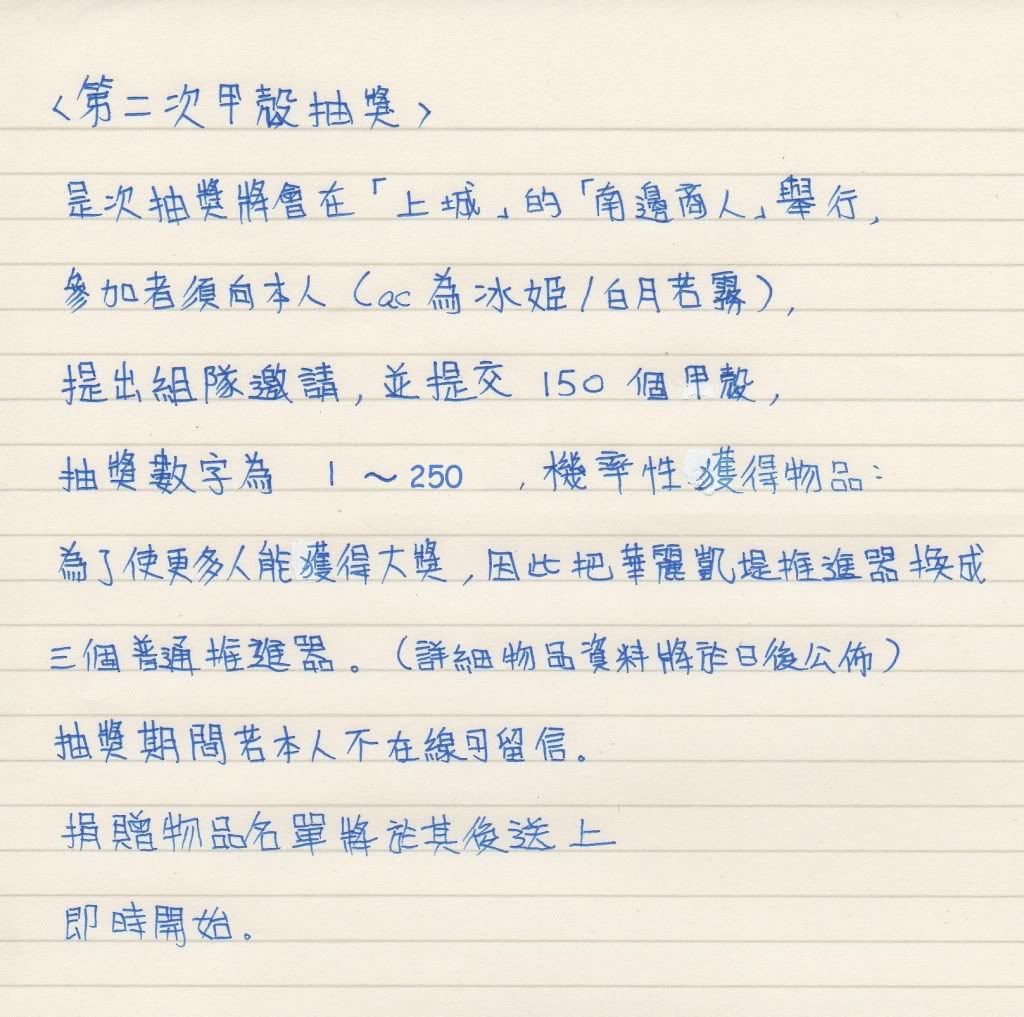 〈第二次甲殼抽獎〉
是次抽獎將會在「上城」的「南邊商人」舉行,
參加者須向本人(ac為冰姬/白月若霧),
提出組隊邀請,並提交 150 個甲殼,
抽獎數字為 1～250 ,機率性獲得物品:
為了使更多人能獲得大獎,因此把華麗凱堤推進器換成
三個普通推進器。(詳細物品資料將於日後公佈)
抽獎期間若本人不在線可留信。
捐贈物品名單將於其後送上
即時開始。